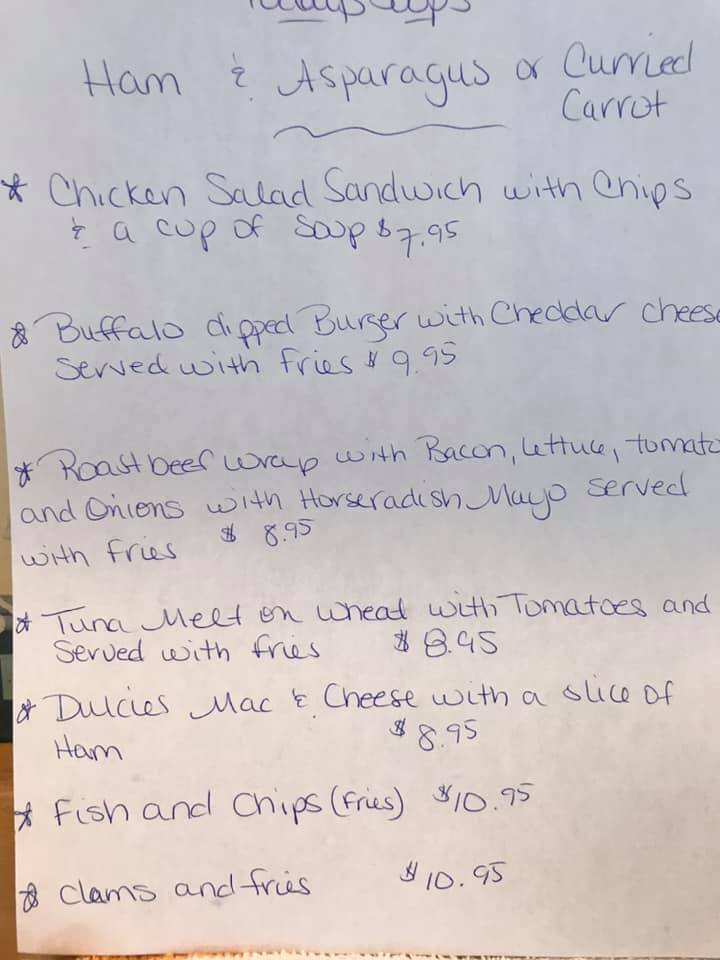 Ham & Asparagus or Curried
Carrot
* Chicken Salad Sandwich with Chips
& a cup of Soup $7.95
* Buffalo dipped Burger with Cheddar cheese
Served with fries $9.95
* Roastbeef wrap with Bacon, lettuce, tomato
and Onions with Horseradish Mayo served
with fries $8.95
* Tuna Melt on wheat with Tomatoes and
Served with fries $8.95
* Dulcies Mac & Cheese with a slice of
Ham $8.95
* Fish and Chips (fries) $10.95
* Clams and fries $10.95